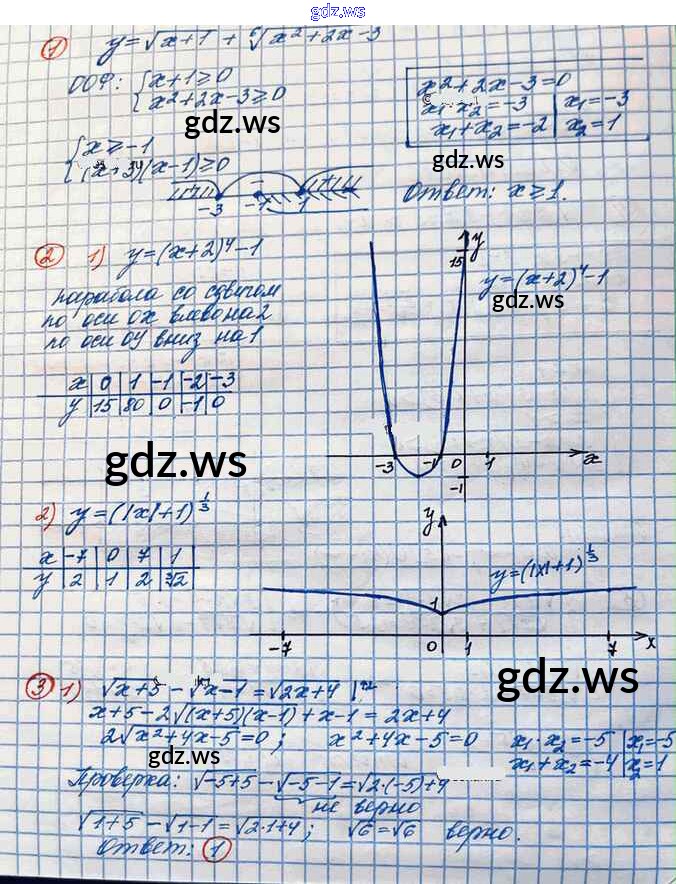 gdz.ws
1 y=√x+1 + ⁶√x²+2x-3
ООФ: {x+1≥0
x²+2x-3≥0
x²+2x-3=0
x₁·x₂=-3 | x₁=-3
x₁+x₂=-2 | x₂=1
gdz.ws
gdz.ws
{x≥-1
(x+3)(x-1)≥0
-3 -1 1
Ответ: x≥1.
2 1) y=(x+2)⁴-1
парабола со сдвигом
по оси OX влево на 2
по оси OY вниз на 1
x | 0 | 1 | -1 | -2 | -3
y | 15 | 80 | 0 | -1 | 0
y
15
y=(x+2)⁴-1
gdz.ws
-3 -1 0 1 x
-1
gdz.ws
2) y=(|x|+1)^(1/3)
x | -7 | 0 | 7 | 1
y | 2 | 1 | 2 | ³√2
y
y=(|x|+1)^(1/3)
1
-7 0 1 7 x
gdz.ws
3 1) √x+5 - √x-1 = √2x+4 |²
x+5-2√(x+5)(x-1)+x-1=2x+4
2√x²+4x-5=0; x²+4x-5=0
x₁·x₂=-5 | x₁=-5
x₁+x₂=-4 | x₂=1
gdz.ws
Проверка: √-5+5 - √-5-1 = √2·(-5)+4
не верно
√1+5 - √1-1 = √2·1+4; √6=√6 верно.
Ответ: 1